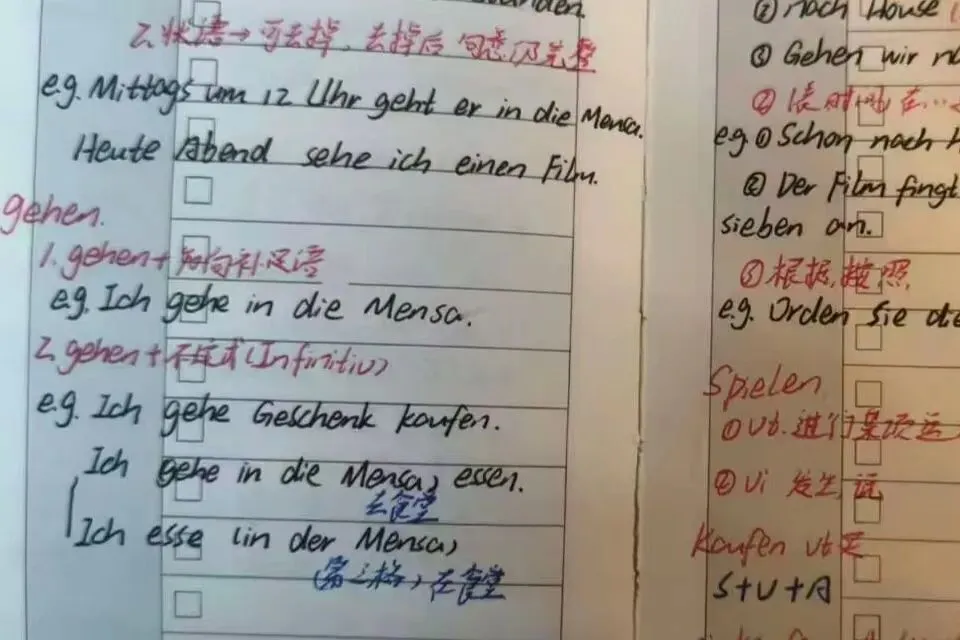 2.状语→可去掉，去掉后句意仍完整
e.g. Mittags um 12 Uhr geht er in die Mensa.
Heute Abend sehe ich einen Film.
gehen.
1. gehen+方向补足语
e.g. Ich gehe in die Mensa.
2. gehen+不定式(Infinitiv)
e.g. Ich gehe Geschenk kaufen.
Ich gehe in die Mensa, essen.
去食堂
Ich esse (in der Mensa)
(第三格)在食堂
② nach House
③ Gehen wir
②
e.g. ① Schon nach
② Der Film fingt
sieben an.
③根据,按照
e.g. Orden Sie die
Spielen
①vt.进行某项运
②vi 发生,
Kaufen vt
S+V+A